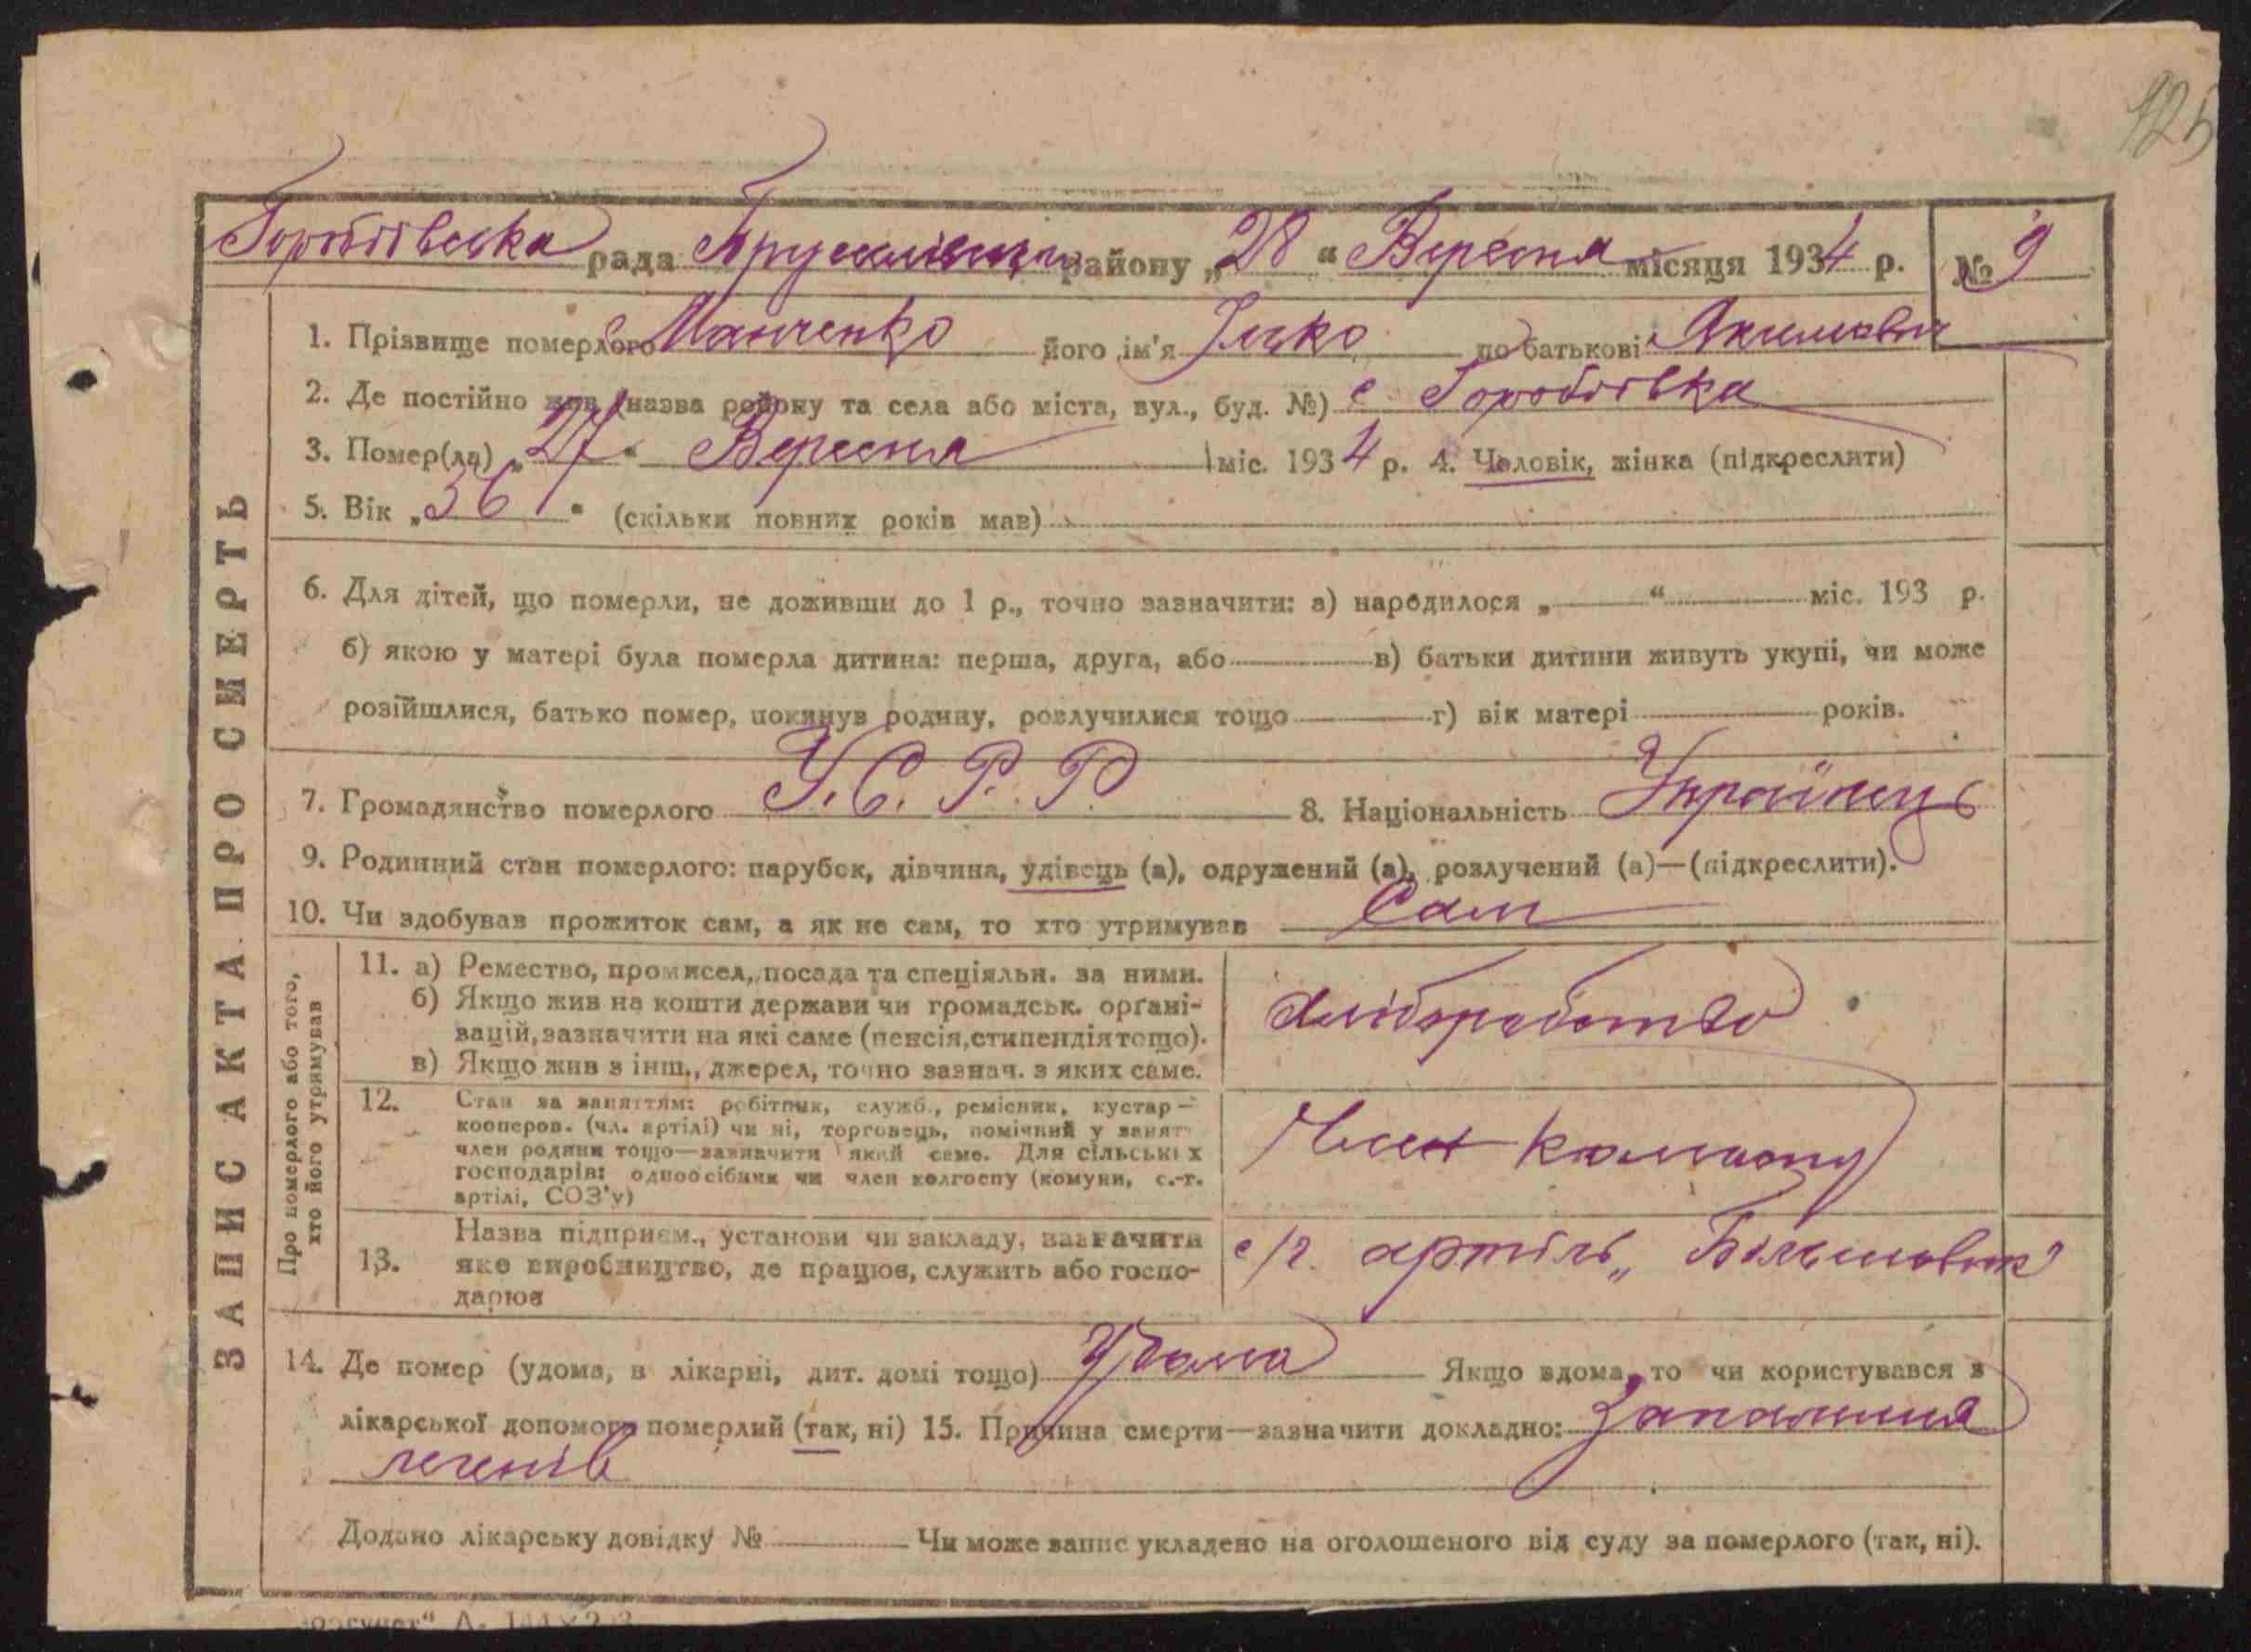 125
Горобіївська рада Брусилівськ району „28“ Вересня місяця 1934 р. № 9
1. Прізвище померлого Манченко його ім'я Ілько по батькові Якимович
2. Де постійно жив (назва району та села або міста, вул., буд. №) с Горобіївка
3. Помер(ла) „27“ Вересня міс. 1934 р. 4. Чоловік, жінка (підкреслити)
5. Вік „36“ (скільки повних років мав)
6. Для дітей, що померли, не доживши до 1 р., точно зазначити: а) народилося „ “ міс. 193 р.
б) якою у матері була померла дитина: перша, друга, або в) батьки дитини живуть укупі, чи може
розійшлися, батько помер, покинув родину, розлучилися тощо г) вік матері років.
7. Громадянство померлого У.С.Р.Р 8. Національність Українець
9. Родинний стан померлого: парубок, дівчина, удівець (а), одружений (а), розлучений (а)—(підкреслити).
10. Чи здобував прожиток сам, а як не сам, то хто утримував Сам
ЗАПИС АКТА ПРО СМЕРТЬ
Про померлого або того,
хто його утримував
11. а) Ремество, промисел, посада та спеціяльн. за ними.
б) Якщо жив на кошти держави чи громадськ. орґані-
зацій, зазначити на які саме (пенсія, стипендія тощо).
в) Якщо жив з інш., джерел, точно зазнач. з яких саме.
хліборобство
12. Стан за заняттям: робітник, служб., ремісник, кустар—
кооперов. (чл. артілі) чи ні, торговець, помічний у занят
член родини тощо—зазначити який саме. Для сільських
господарів: одноосібник чи член колгоспу (комуни, с.-г.
артілі, СОЗ'у)
Член колгоспу
13. Назва підприєм., установи чи закладу, зазначити
яке виробництво, де працює, служить або госпо-
дарює
с/г. артіль „Більшовик"
14. Де помер (удома, в лікарні, дит. домі тощо) Удома Якщо вдома, то чи користувався з
лікарської допомоги померлий (так, ні) 15. Причина смерти—зазначити докладно: Запалення
легенів
Додано лікарську довідку № Чи може запис укладено на оголошеного від суду за померлого (так, ні).